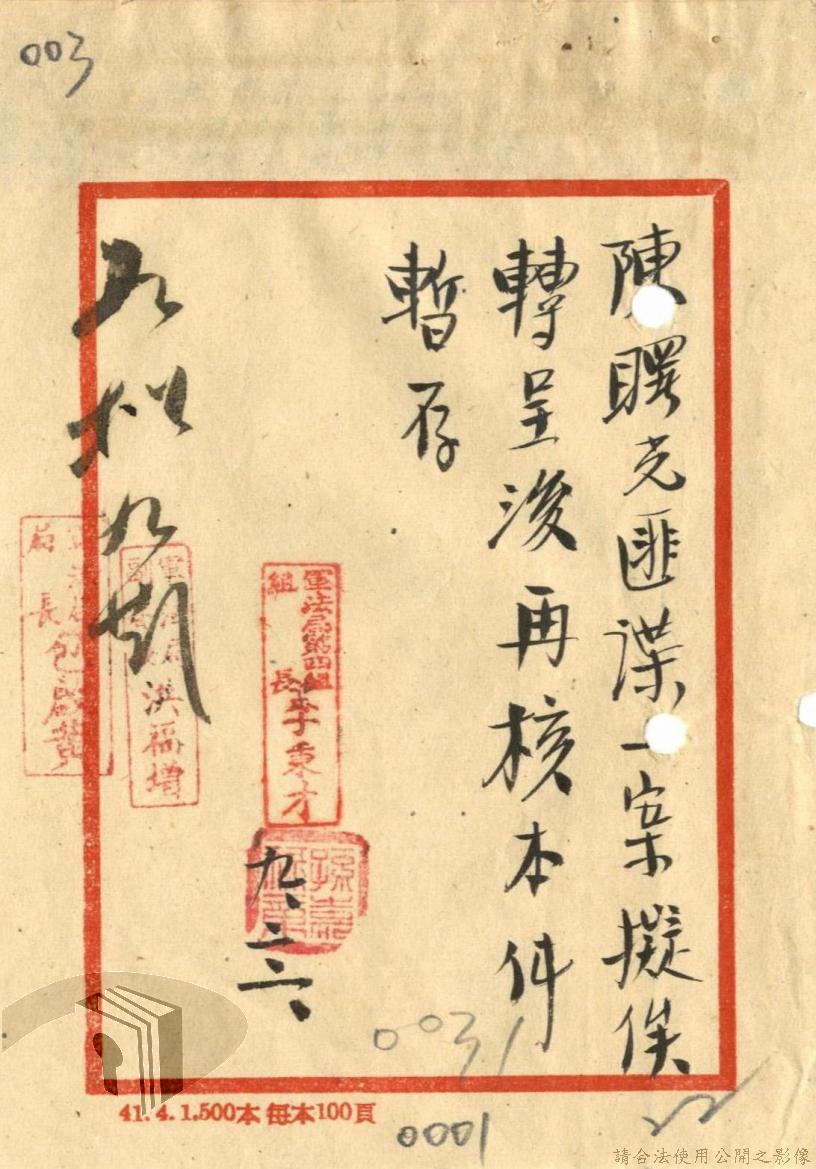 003
陳曙光匪諜一案擬俟
轉呈後再核本件
暫存
軍法局第四組
組長李秉才
九、
洪福增
局長包啟黃
003
0001
41.4.1,500本 每本100頁
請合法使用公開之影像